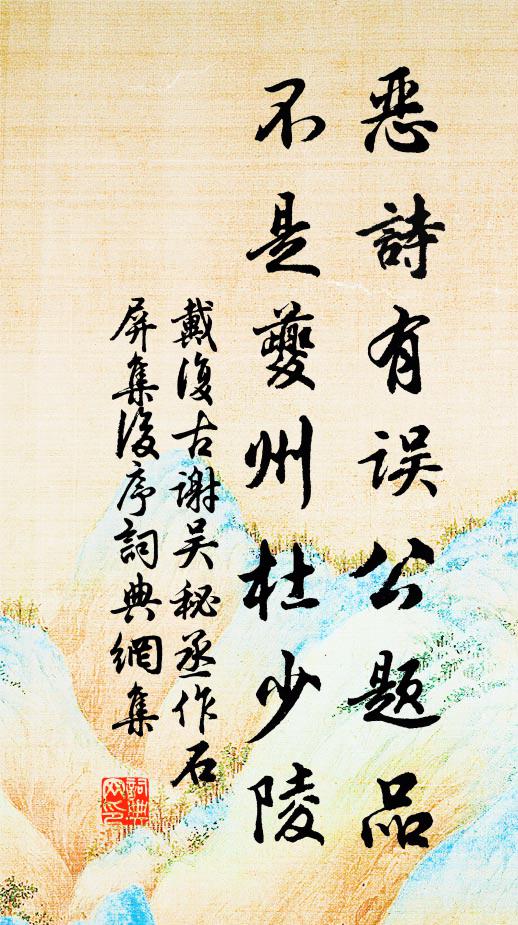 恶詩有误公题品
不是夔州杜少陵
戴復古谢吴秘丞作石
屏集後序詞典網集
詞典
网印